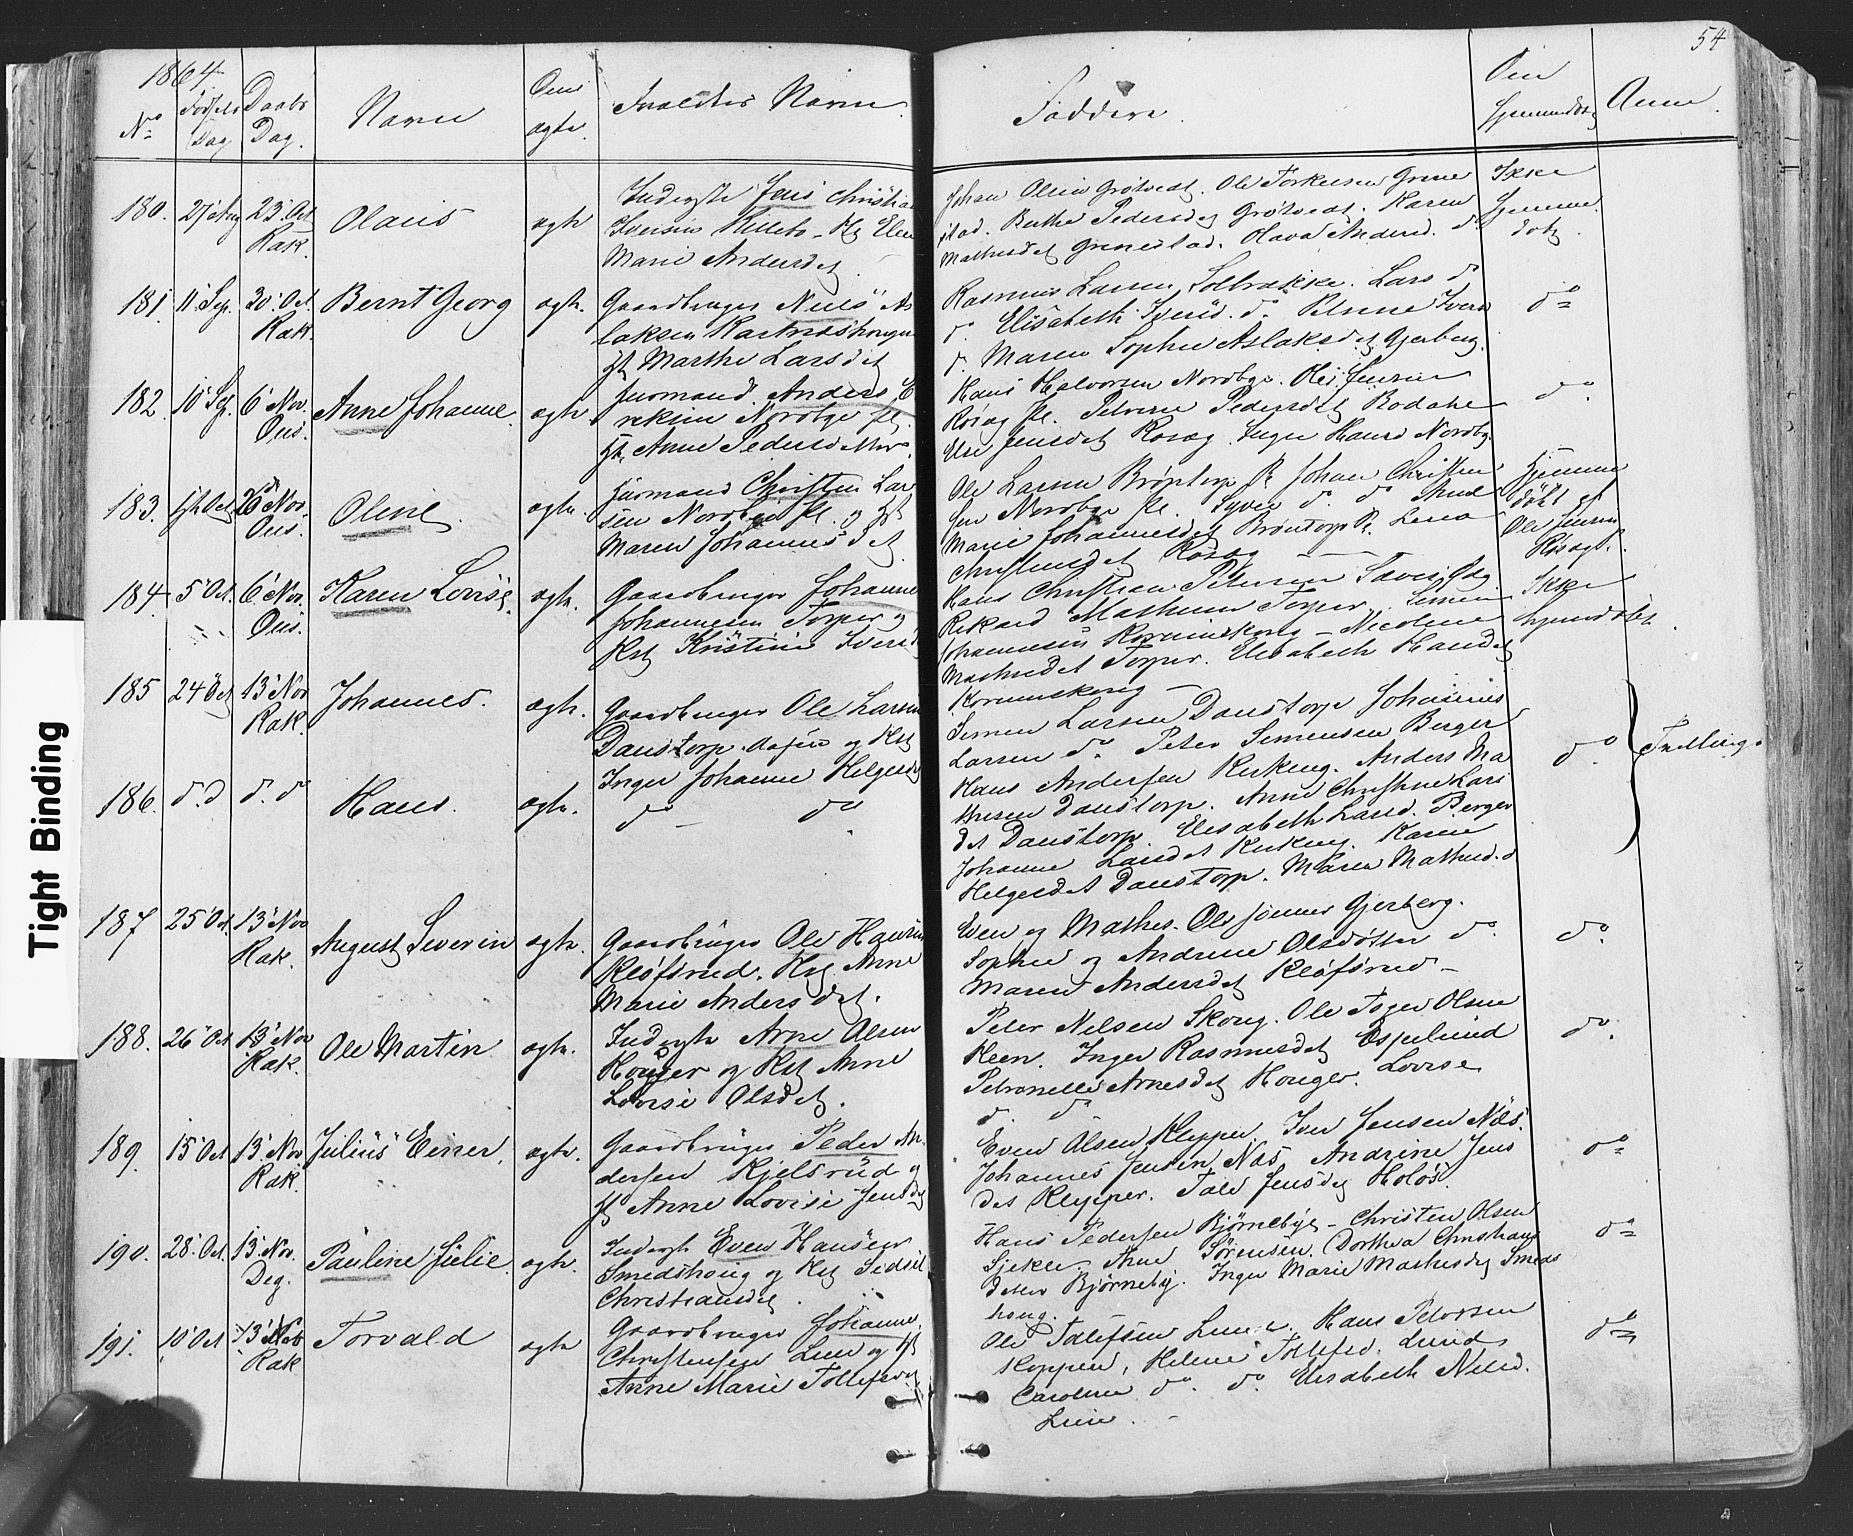 54
1864
No Fødsels Dag Daabs Dag. Navn Om ægte. Forældres Navn Faddere. Om Hjemmedøbt Anm.
180. 27 Aug 23 Oct Rak. Olaus ægte
Inderste Jens Christian
Iversen Kileebo - Hst Elen
Marie Andersdat.
Johan Olsen Grøtvedt. Ole Torkelsen Grene
stad. Berthe Pedersdt Grøtvedt. Karen
Mathisdt Grenestad. Olava Andersd. do
Ikke
Hjemme
døbt.
181. 11 Sep. 30 Oct. Rak. Bernt Georg ægte.
Gaardbruger Niels As
laksen Karknæshougen
Hst Marthe Larsdt
Rasmus Larsen Solbrække. Lars do
do. Elisabeth Iversd. do. Petrine Ivers
d. Maren Sophie Aslaksdt Gjerberg.
do
182. 10 Sep. 6 Nov. Ous. Anne Johanne. ægte.
Jurmand. Anders E
reksen Nordbye pl.
Hst. Anne Pedersd
Hans Halvorsen Nordbye. Ole Jensen
Rosæg pl. Petrine Pedersdt
Else Jensdt Rosæg. Inger Hansd Nordby.
do.
183. Oct 6 Nov. Ous. Oline. ægte.
Jurmand Christen Lar
sen Nordbye pl. og Hst
Maren Johannesdt
Ole Larsen Brøntorp Pl. Johan Christen
sen Nordbye pl. Syver do do
Marie Johannesdt Brøntorp Pl. Lena
Christensdt Rosæg
Hjemme
døbt af
Ole Jensen
Rosæg Pl.
184. 5 Oct. 6 Nov. Ous. Karen Lovise. ægte.
Gaardbruger Johannes
Johannesen Torper og
Kst Kristine Iversd
Hans Christian Petersen
Rikard Mathisen Torper. Simen
Johannesen Korsmskoug - Nicoline
Mathisdt Torper. Elisabeth Hansdt
Ikke
hjemdøbt.
185 24 Oct 13 Nov Rak. Johannes. ægte.
Gaardbruger Ole Larsen
Danstorp og Kst
Inger Johanne Helgesdt
Simen Larsen Danstorp Johannes
Larsen do Peter Simensen Berger
Hans Andersen Kirkeng. Anders Ma
thisen Danstorp. Anne Christine Lars
dt Danstorp. Elisabeth Larsd. Berger
Johanne Larsdt Kirkeng. Karen
Helgesdt Danstorp. Maren Mathisd. d
do.
Tvillinger
186. d. d d. d Hans. ægte.
do - do
187. 25 Oct. 13 Nov Rak. August Severin ægte.
Gaardbruger Ole Hansen
Kløfsrud. Hst Anne
Marie Andersdt.
Even og Mathis Olssønner Gjerberg.
Sophie og Andrine Olsdøtter do.
Maren Andersdt Kløfsrud -
do.
188. 26 Oct 13 Nov Rak. Ole Martin ægte.
Inderste Arne Olsen
Houger og Kst Anne
Lovise Olsdt.
Peter Nilsen Skoug. Ole Olsen
Keen. Inger Rasmusdt Espelund
Petronelle Arnesdt Houger. Lovise
d. do
do.
189. 15 Oct 13 Nov Rak. Julius Einer. ægte.
Gaardbruger Peder An
dersen Kjelsrud og
Hst Anne Lovise Jensdt
Even Olsen Klypper. Iver Jensen Næs.
Johannes Jensen Næs. Andrine Jens
dt Klypper. Jensdt Holøs.
do
190. 28 Oct. 13 Nov. Deg. Pauline Julie. ægte.
Inderste Even Hansen
Smedshoug og Kst Sidsel
Christiansdt.
Hans Pedersen Bjørnebye - Christen Olsen
Sjekle. Arne Sørensen. Dorthea Christians
datter Bjørneby. Inger Marie Mathisdt Smeds
houg.
do
191. 10 Oct 13 Nov Rak Torvald ægte
Gaardbruger Johannes
Christensen Lein og Hst
Anne Marie Tollefsdt
Ole Tollefsen Lund. Hans Petersen
Koppen, Helene Tollefsd. Lund
Caroline do. do. Elisabeth Nilsd.
Lein. -
do
Tight Binding